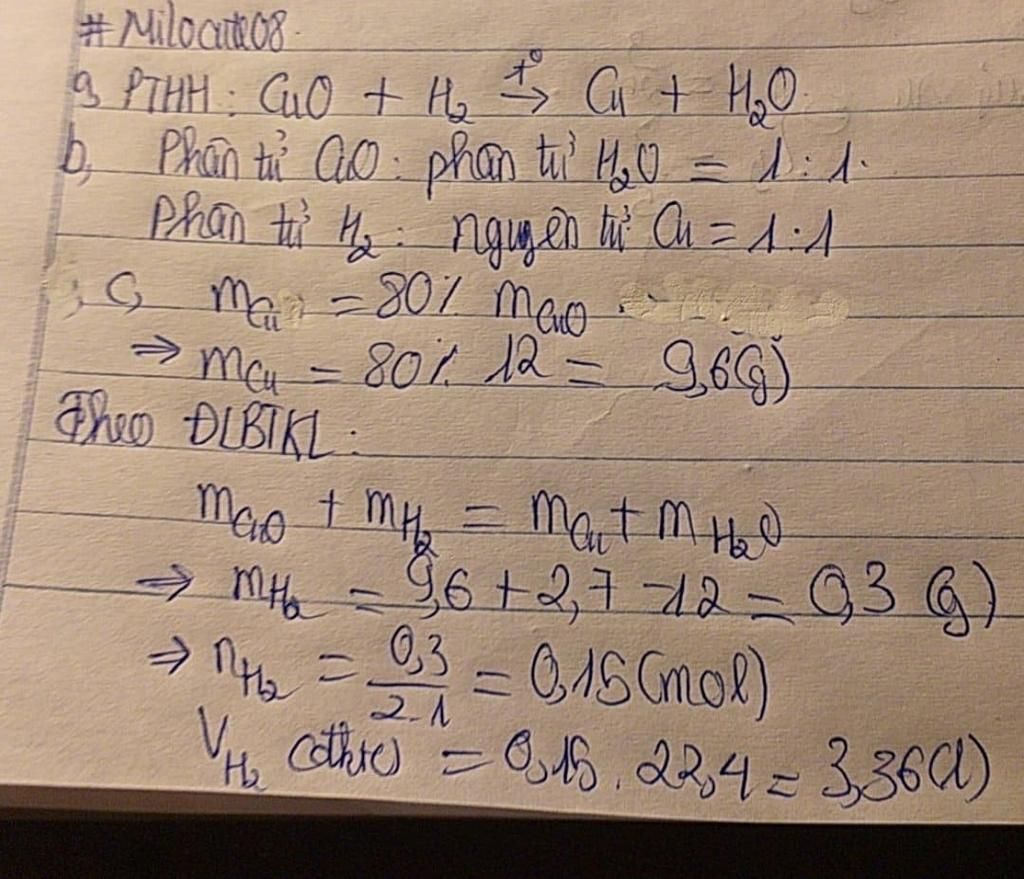 #Milocute08.
a, PTHH: CuO + H₂ →^{t°} Cu + H₂O.
b, Phân tử CuO : phân tử H₂O = 1 : 1.
Phân tử H₂ : nguyên tử Cu = 1 : 1
c, m_{Cu} = 80% m_{CuO}
⇒ m_{Cu} = 80% 12 = 9,6(g)
Theo ĐLBTKL:
m_{CuO} + m_{H₂} = m_{Cu} + m_{H₂O}
⇒ m_{H₂} = 9,6 + 2,7 - 12 = 0,3 (g)
⇒ n_{H₂} = \frac{0,3}{2.1} = 0,15 (mol)
V_{H₂} (đktc) = 0,15 . 22,4 = 3,36(l)